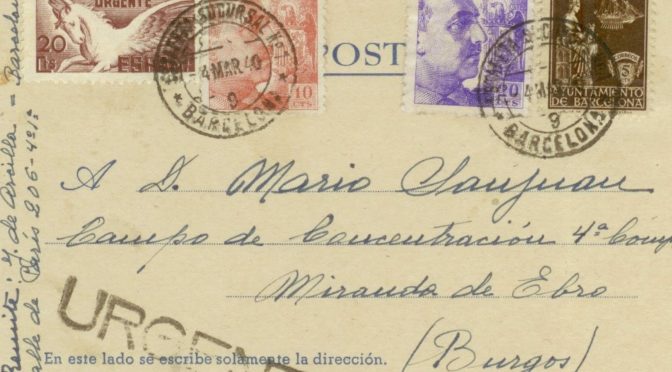 URGENTE
20 Cts. ESPAÑA
10 CTS
20 CTS
5
AYUNTAMIENTO
DE BARCELONA
SUCURSAL Nº
4 MAR 40
9
BARCELONA
4 MAR
9
BARCELONA
POST
A D. Mario Sanjuan
Campo de Concentración 4ª Comp
Miranda de Ebro
(Burgos)
URGENT
En este lado se escribe solamente la dirección.
Remite: J. de Arcilla - Barcelo
Calle de París 206-4º1ª